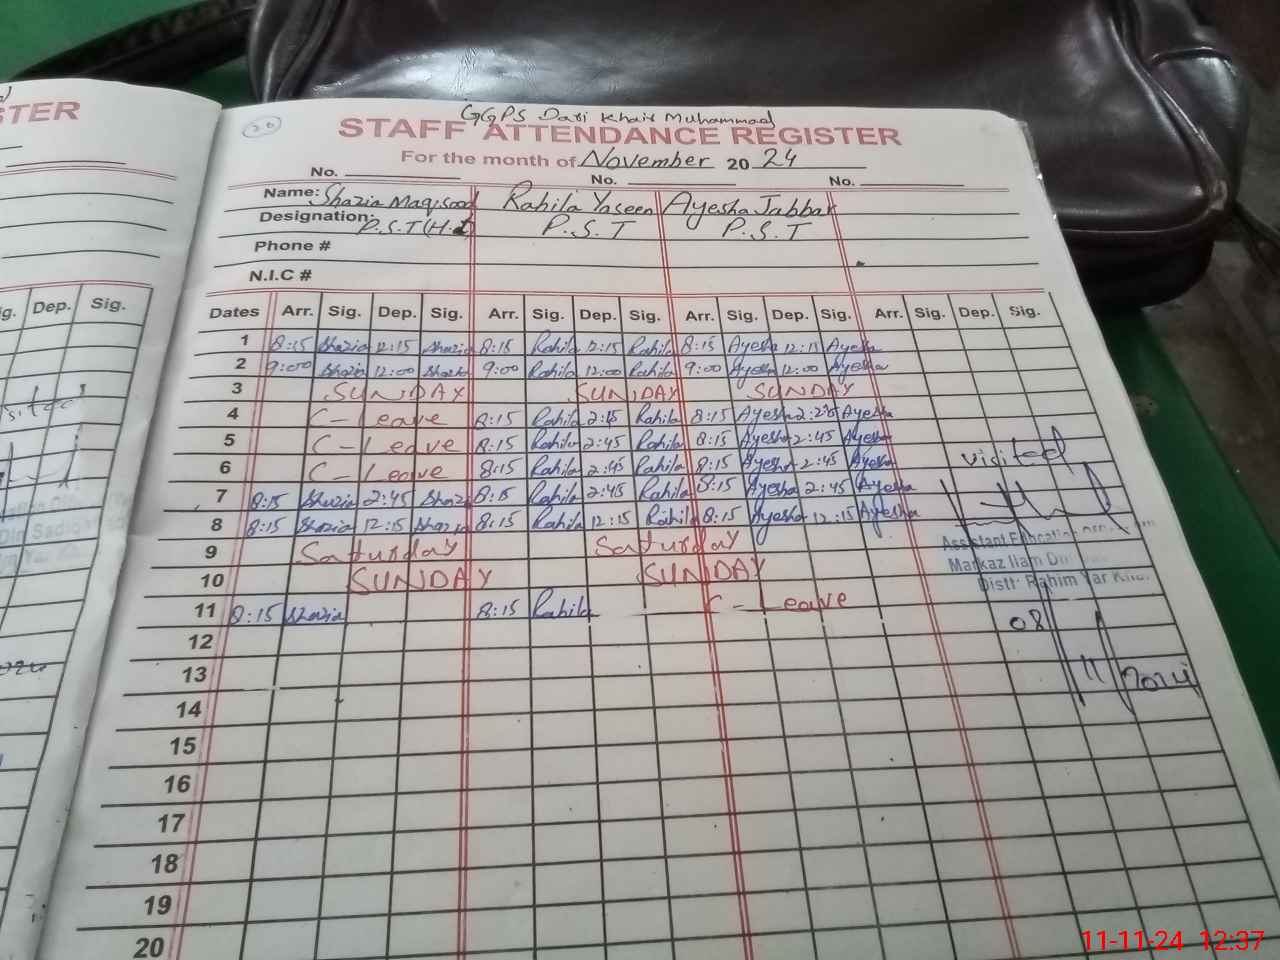 STER
GGPS Dari Khair Muhammad
20
STAFF ATTENDANCE REGISTER
For the month of November 20 24
No. No. No.
Name: Shazia Maqsood Rahila Yaseen Ayesha Jabbar
Designation: P.S.T P.S.T P.S.T
Phone #
N.I.C #
Dep. Sig.
Dates Arr. Sig. Dep. Sig. Arr. Sig. Dep. Sig. Arr. Sig. Dep. Sig. Arr. Sig. Dep. Sig.
1 8:15 Shazia 12:15 Shazia 8:15 Rahila 12:15 Rahila 8:15 Ayesha 12:15 Ayesha
2 9:00 Shazia 12:00 Shazia 9:00 Rahila 12:00 Rahila 9:00 Ayesha 12:00 Ayesha
3 SUNDAY SUNDAY SUNDAY
4 C-Leave 8:15 Rahila Rahila 8:15 Ayesha Ayesha
5 C-Leave 8:15 Rahila 2:45 Rahila 8:15 Ayesha 2:45 Ayesha
6 C-Leave 8:15 Rahila 2:45 Rahila 8:15 Ayesha 2:45 Ayesha
visited
7 8:15 Shazia 2:45 Shazia 8:15 Rahila 2:45 Rahila 8:15 Ayesha 2:45 Ayesha
8 8:15 Shazia 12:15 Shazia 8:15 Rahila 12:15 Rahila 8:15 Ayesha 12:15 Ayesha
9 Saturday Saturday
Assistant Education
Markaz Ilam Din
Distt: Rahim Yar Khan.
10 SUNDAY SUNDAY
11 8:15 Shazia 8:15 Rahila C-Leave
08/11/2024
12
13
14
15
16
17
18
19
20
11-11-24 12:37